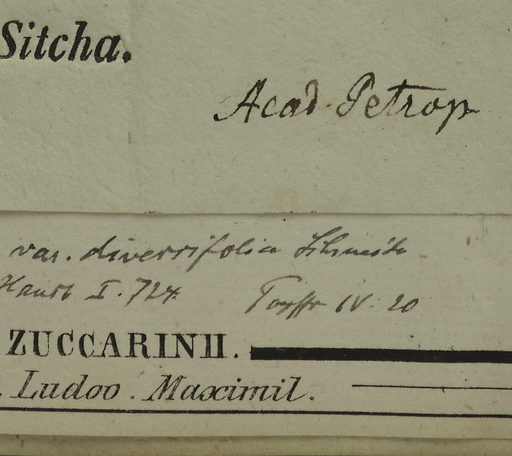 Sitcha.
Acad. Petrop
var. diversifolia Schneid
Handb I. 724
IV. 20
ZUCCARINII.
Ludov. Maximil.